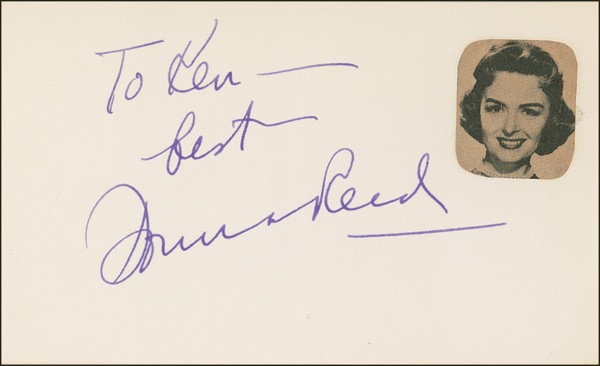 To Ken —
best —
Donna Reed